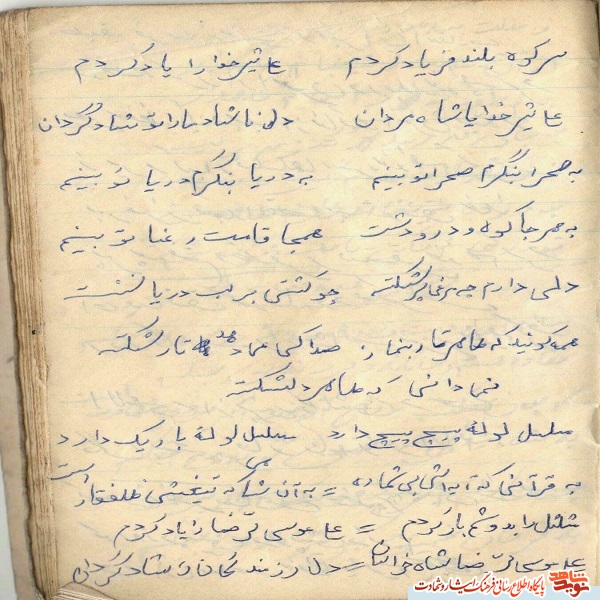 سر کوه بلند فریاد کردم علی شیر خدا را یاد کردم
علی شیر خدا یا شاه مردان دل ناشاد ما را تو شاد گردان
به صحرا بنگرم صحرا تو بینم به دریا بنگرم دریا تو بینم
به هر جا کوه و در و دشت همجا قامت رعنا تو بینم
دلی دارم چه مرغ پر شکسته چو کشتی بر لب دریا نشسته
همه گویند که طاهر تار بنما ز صدا کی می دهد تار شکسته
نمی دانی که طاهر دلشکسته
سلسل لوله پیچ پیچ دارد سلسل لوله باریک دارد
به قرآنی که آیه اش بی شماره = به آن شاهی که تیغش ذلفقار است
سلسل را بدوشم بار کردم = علی موسی الرضا را یاد کردم
علی موسی الرضا شاه خراسان = دل رزمندگان را تو شاد گردان
نوید شاهد پایگاه اطلاع رسانی فرهنگ ایثار و شهادت